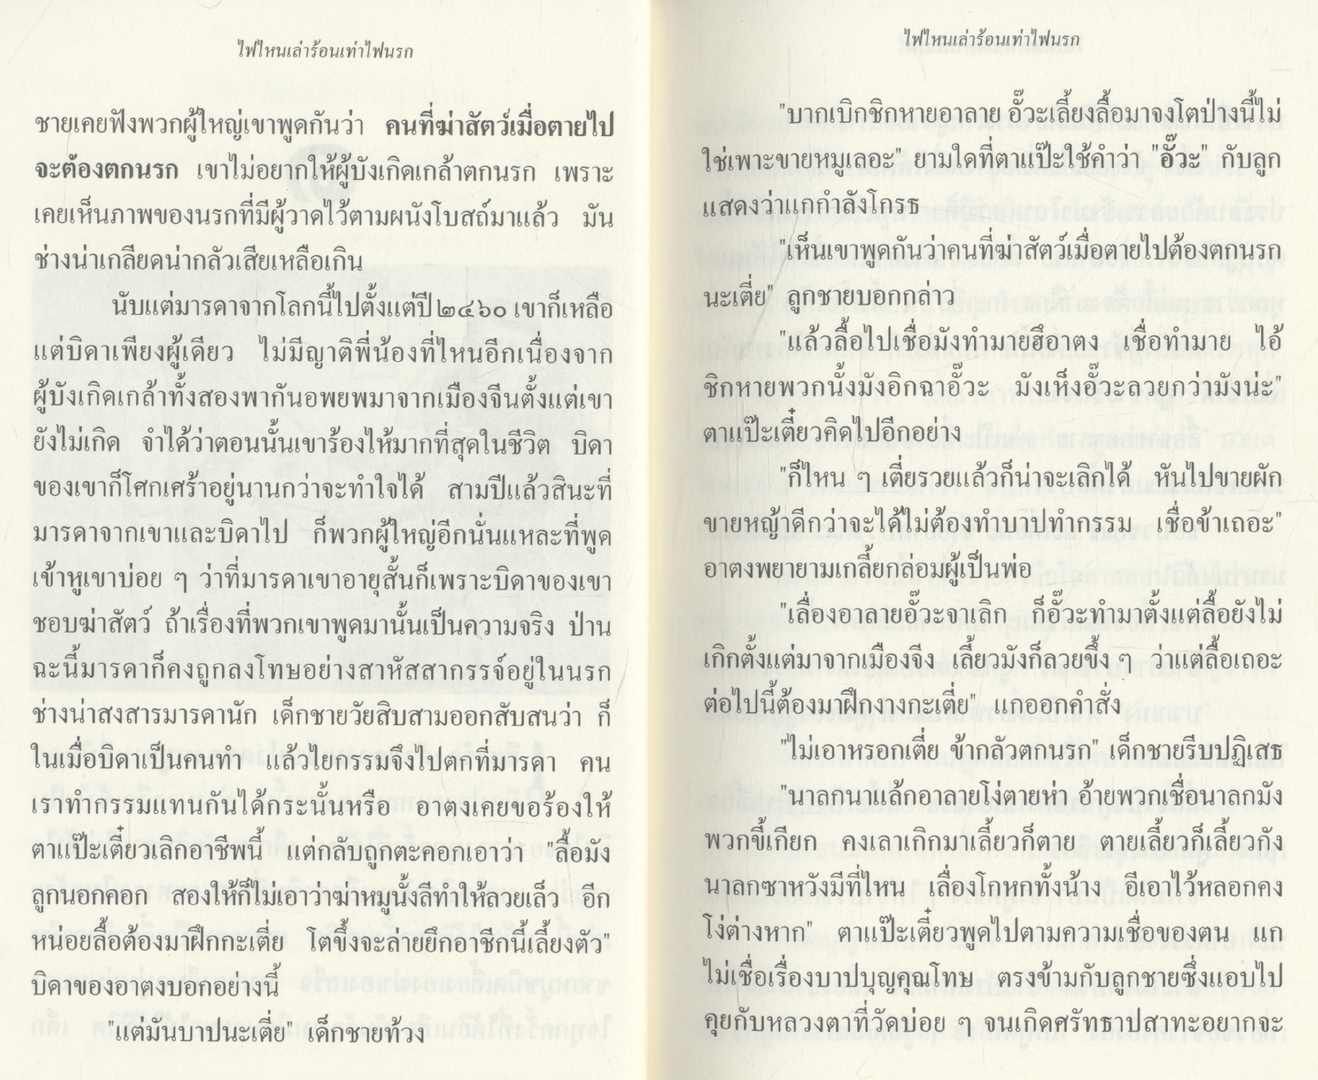 ไฟไหนเล่าร้อนเท่าไฟนรก
ชายเคยฟังพวกผู้ใหญ่เขาพูดกันว่า คนที่ฆ่าสัตว์เมื่อตายไป
จะต้องตกนรก เขาไม่อยากให้ผู้บังเกิดเกล้าตกนรก เพราะ
เคยเห็นภาพของนรกที่มีผู้วาดไว้ตามผนังโบสถ์มาแล้ว มัน
ช่างน่าเกลียดน่ากลัวเสียเหลือเกิน
นับแต่มารดาจากโลกนี้ไปตั้งแต่ปี๒๔๖๐ เขาก็เหลือ
แต่บิดาเพียงผู้เดียว ไม่มีญาติพี่น้องที่ไหนอีกเนื่องจาก
ผู้บังเกิดเกล้าทั้งสองพากันอพยพมาจากเมืองจีนตั้งแต่เขา
ยังไม่เกิด จำได้ว่าตอนนั้นเขาร้องไห้มากที่สุดในชีวิต บิดา
ของเขาก็โศกเศร้าอยู่นานกว่าจะทำใจได้ สามปีแล้วสินะที่
มารดาจากเขาและบิดาไป ก็พวกผู้ใหญ่อีกนั่นแหละที่พูด
เข้าหูเขาบ่อย ๆ ว่าที่มารดาเขาอายุสั้นก็เพราะบิดาของเขา
ชอบฆ่าสัตว์ ถ้าเรื่องที่พวกเขาพูดมานั้นเป็นความจริง ป่าน
ฉะนี้มารดาก็คงถูกลงโทษอย่างสาหัสสากรรจ์อยู่ในนรก
ช่างน่าสงสารมารดานัก เด็กชายวัยสิบสามออกสับสนว่า ก็
ในเมื่อบิดาเป็นคนทำ แล้วไยกรรมจึงไปตกที่มารดา คน
เราทำกรรมแทนกันได้กระนั้นหรือ อาตงเคยขอร้องให้
ตาแป๊ะเตี๋ยวเลิกอาชีพนี้ แต่กลับถูกตะคอกเอาว่า "ลื้อมัง
ลูกนอกคอก สองให้ก็ไม่เอาว่าฆ่าหมูนั้งลีทำให้ลวยเล็ว อีก
หน่อยลื้อต้องมาฝึกกะเตี่ย โตขึ้งจะล่ายยึกอาชีกนี้เลี้ยงตัว"
บิดาของอาตงบอกอย่างนี้
"แต่มันบาปนะเตี่ย" เด็กชายท้วง
ไฟไหนเล่าร้อนเท่าไฟนรก
"บากเบิกชิกหายอาลาย อั๊วะเลี้ยงลื้อมาจงโตป่างนี้ไม่
ใช่เพาะขายหมูเลอะ" ยามใดที่ตาแป๊ะใช้คำว่า "อั๊วะ" กับลูก
แสดงว่าแกกำลังโกรธ
"เห็นเขาพูดกันว่าคนที่ฆ่าสัตว์เมื่อตายไปต้องตกนรก
นะเตี่ย" ลูกชายบอกกล่าว
"แล้วลื้อไปเชื่อมังทำมายฮึอาตง เชื่อทำมาย ไอ้
ชิกหายพวกนั้งมังอิกฉาอั๊วะ มังเห็งอั๊วะลวยกว่ามังน่ะ"
ตาแป๊ะเตี๋ยวคิดไปอีกอย่าง
"ก็ไหน ๆ เตี่ยรวยแล้วก็น่าจะเลิกได้ หันไปขายผัก
ขายหญ้าดีกว่าจะได้ไม่ต้องทำบาปทำกรรม เชื่อข้าเถอะ"
อาตงพยายามเกลี้ยกล่อมผู้เป็นพ่อ
"เลื่องอาลายอั๊วะจาเลิก ก็อั๊วะทำมาตั้งแต่ลื้อยังไม่
เกิกตั้งแต่มาจากเมืองจีง เลี้ยวมังก็ลวยขึ้ง ๆ ว่าแต่ลื้อเถอะ
ต่อไปนี้ต้องมาฝึกงางกะเตี่ย" แกออกคำสั่ง
"ไม่เอาหรอกเตี่ย ข้ากลัวตกนรก" เด็กชายรีบปฏิเสธ
"นาลกนาแล้กอาลายโง่ตายห่า อ้ายพวกเชื่อนาลกมัง
พวกขี้เกียก คงเลาเกิกมาเลี้ยวก็ตาย ตายเลี้ยวก็เลี้ยวกัง
นาลกซาหวังมีที่ไหน เลื่องโกหกทั้งน้าง อีเอาไว้หลอกคง
โง่ต่างหาก" ตาแป๊ะเตี๋ยวพูดไปตามความเชื่อของตน แก
ไม่เชื่อเรื่องบาปบุญคุณโทษ ตรงข้ามกับลูกชายซึ่งแอบไป
คุยกับหลวงตาที่วัดบ่อย ๆ จนเกิดศรัทธาปสาทะอยากจะ